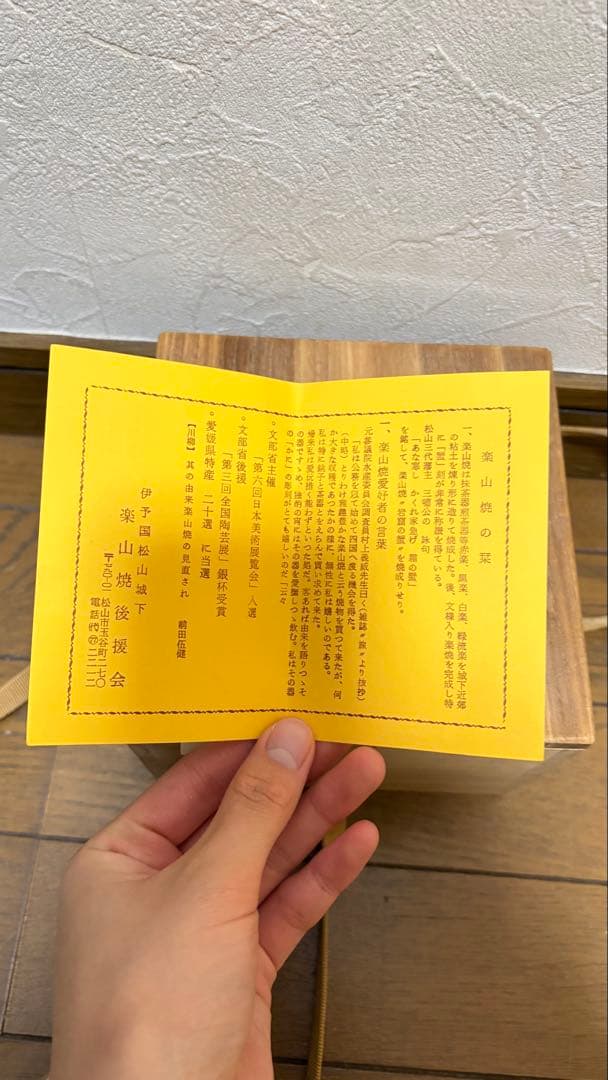 楽山焼の栞
一、楽山焼は抹茶器煎茶器等赤楽、黒楽、白楽、緑流楽を城下近郊
の粘土を煉り形に造りて焼成した。後、文様入り楽焼を完成し特
に〝蟹〟刻が非常に称讃を得ている。
松山三代藩主 三嘯公の 詠句
「あな寒し かくれ家急げ 霜の蟹」
を銘して 楽山焼〝岩窟の蟹〟を焼成りせり。
一、楽山焼愛好者の言葉
元参議院水産委員会調査員村上義威先生曰く(雑誌〝旅〟より抜抄)
「私は公務を冠て始めて四国へ渡る機会を得た。
(中略)とりわけ雅趣豊かな楽山焼と云う焼物を買つて来たが、何
か大きな収穫であつたかの様に、無性に私は嬉しいのである。
私は特に銚子と茶器とをえらんで買い求めて来た。
帰来私は愛玩措く能わずといつた処だ。客あれば由来を語りつゝそ
の器ですゝめ、独酌の宵にはその器を愛撫しつゝ飲む。私はその器
の「かに」の彫刻がとても嬉しいのだ」云々
。文部省主催
「第六回日本美術展覧会」入選
。文部省後援
「第三回全国陶芸展」銀杯受賞
。愛媛県特産 二十選 に当選
【川柳】其の由来楽山焼の見直され 前田伍健
伊予国松山城下
楽山焼後援会
松山市玉谷町二七〇